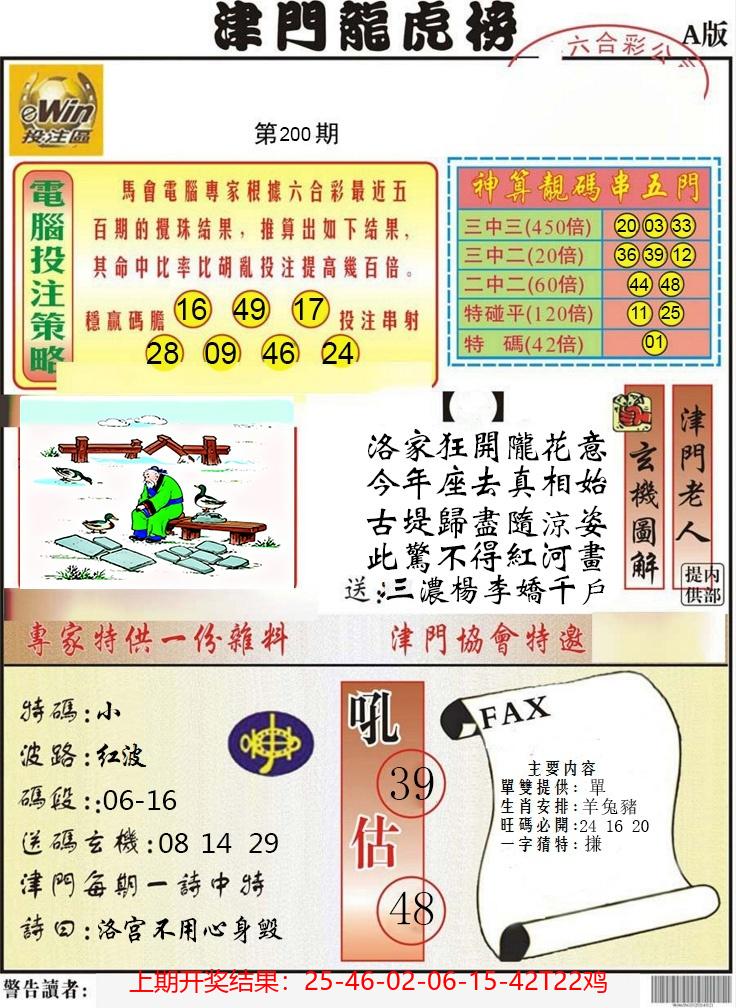 津門龍虎榜
A版
六合彩公
eWin
投注區
第200期
電腦投注策略
馬會電腦專家根據六合彩最近五
百期的攪珠结果，推算出如下结果，
其命中比率比胡亂投注提高幾百倍。
穩贏碼膽 16 49 17 投注串射
28 09 46 24
神算靚碼串五門
三中三(450倍) 20 03 33
三中二(20倍) 36 39 12
二中二(60倍) 44 48
特碰平(120倍) 11 25
特 碼(42倍) 01
【 】
洛家狂開隴花意
今年座去真相始
古堤歸盡隨涼姿
此驚不得紅河畫
送:三濃楊李嬌千戶
玄機圖解
津門老人
内部提供
專家特供一份雜料
津門協會特邀
特碼:小
波路:红波
碼段::06-16
送碼玄機:08 14 29
津門每期一詩中特
詩曰:洛宫不用心身毁
吼
39
估
48
FAX
主要内容
單雙提供: 單
生肖安排:羊兔豬
旺码必開:24 16 20
一字猜特:搛
警告讀者:
上期开奖结果：25-46-02-06-15-42T22鸡